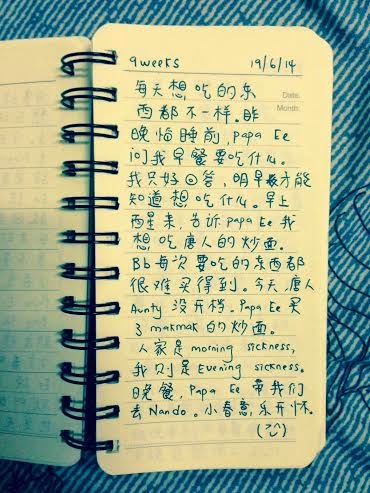 9weeks 19/6/14
Date.
每天想吃的东
Month.
西都不一样。昨
晚临睡前, Papa Ee
问我早餐要吃什么。
我只好回答, 明早才能
知道想吃什么。早上
醒来, 告诉 papa Ee 我
想吃唐人的炒面。
Bb每次要吃的东西都
很难买得到。今天, 唐人
Aunty 没开档。Papa Ee 买
了 makmak 的炒面。
人家是 morning sickness,
我则是 Evening sickness.
晚餐, Papa Ee 带我们
去Nando。小春意, 乐开怀.